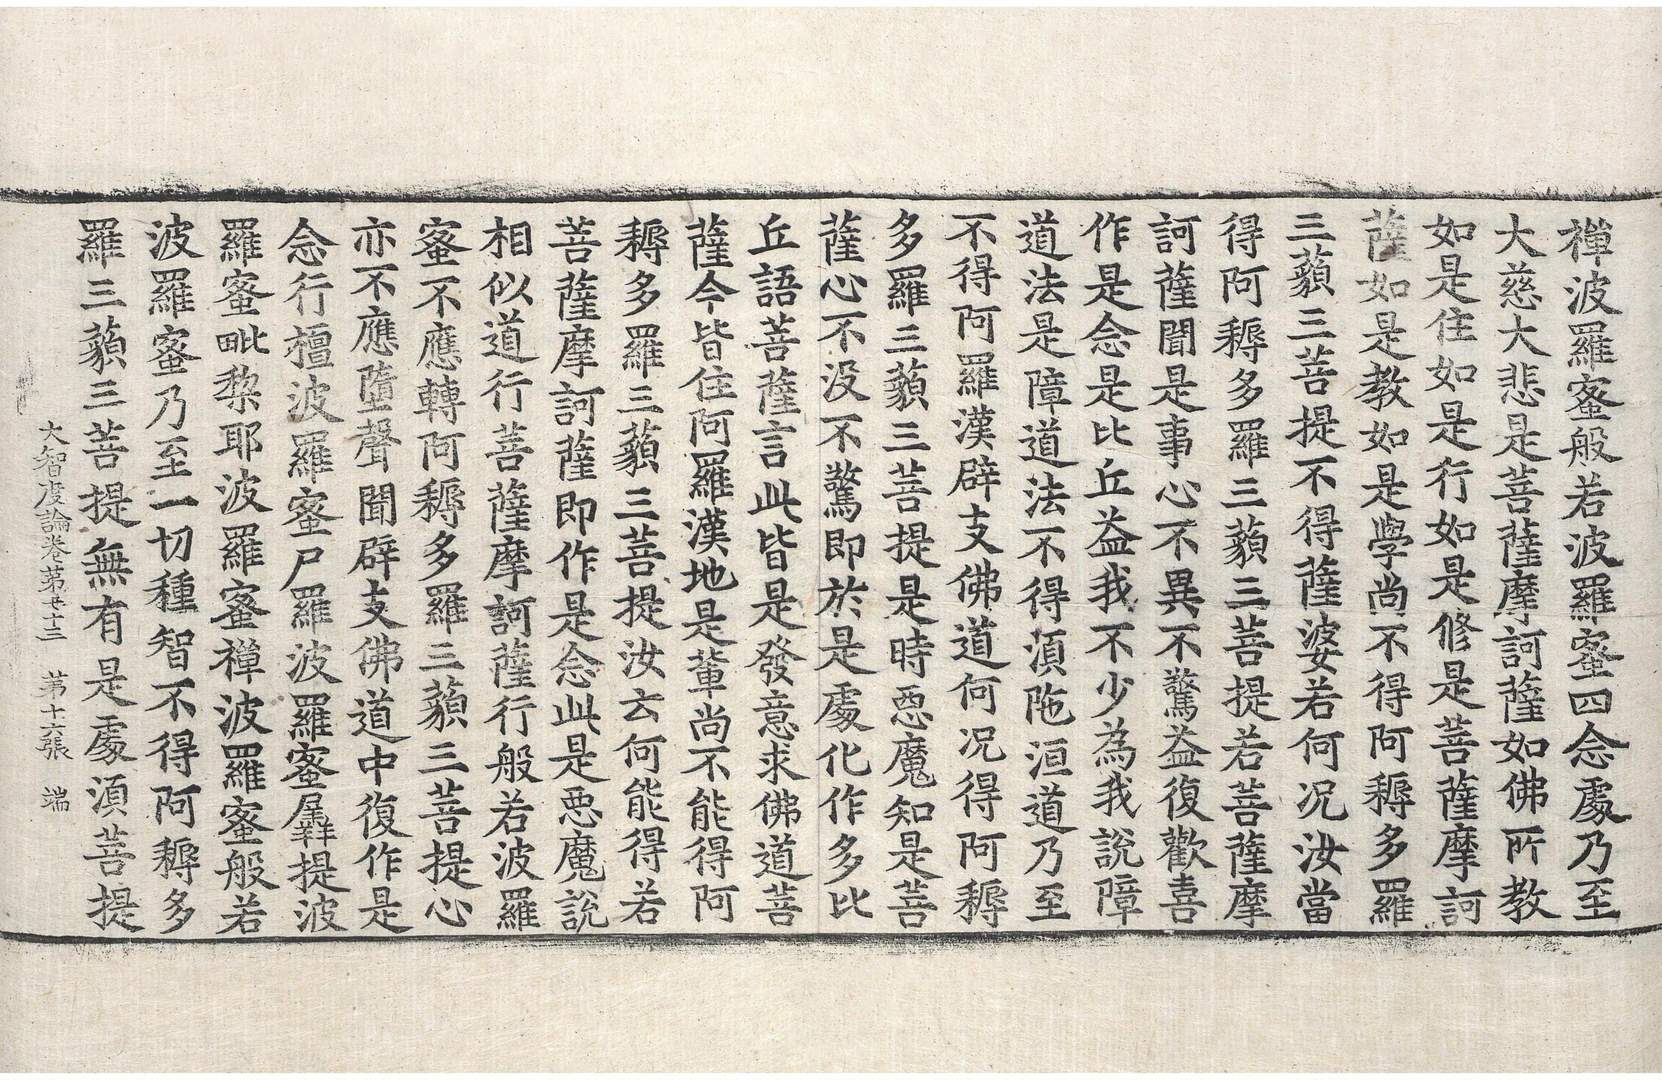 禪波羅蜜般若波羅蜜四念處乃至
大慈大悲是菩薩摩訶薩如佛所教
如是住如是行如是修是菩薩摩訶
薩如是教如是學尚不得阿耨多羅
三藐三菩提不得薩婆若何況汝當
得阿耨多羅三藐三菩提若菩薩摩
訶薩聞是事心不異不驚益復歡喜
作是念是比丘益我不少為我說障
道法是障道法不得須陁洹道乃至
不得阿羅漢辟支佛道何況得阿耨
多羅三藐三菩提是時惡魔知是菩
薩心不沒不驚即於是處化作多比
丘語菩薩言此皆是發意求佛道菩
薩今皆住阿羅漢地是輩尚不能得阿
耨多羅三藐三菩提汝云何能得若
菩薩摩訶薩即作是念此是惡魔說
相似道行菩薩摩訶薩行般若波羅
蜜不應轉阿耨多羅三藐三菩提心
亦不應墮聲聞辟支佛道中復作是
念行檀波羅蜜尸羅波羅蜜羼提波
羅蜜毗梨耶波羅蜜禪波羅蜜般若
波羅蜜乃至一切種智不得阿耨多
羅三藐三菩提無有是處須菩提
大智度論卷第廿三 第十六張 端